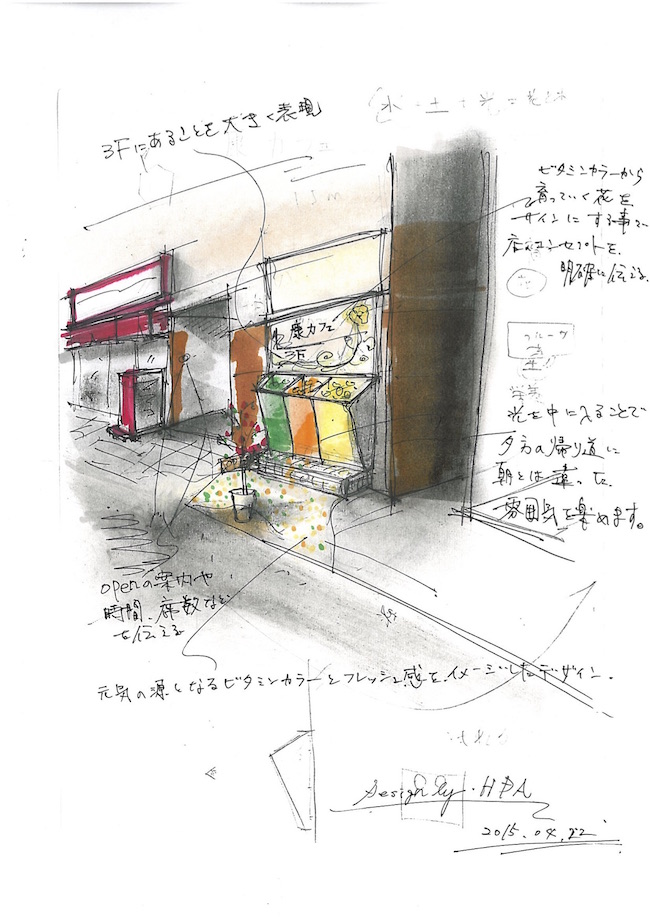 3Fにあることを大きく表現
ビタミンカラーから
育っていく花を
サインにする事で
店のコンセプトを、
明確に伝える。
康カフェ
3F
フルーツ
光を中に入ることで
夕方の帰り道に
朝とは違った
雰囲気を楽めます。
openの案内や
時間、席数など
を伝える
元気の源となるビタミンカラーとフレッシュ感を、イメージしたデザイン.
Design by・HPA
2015.04.22